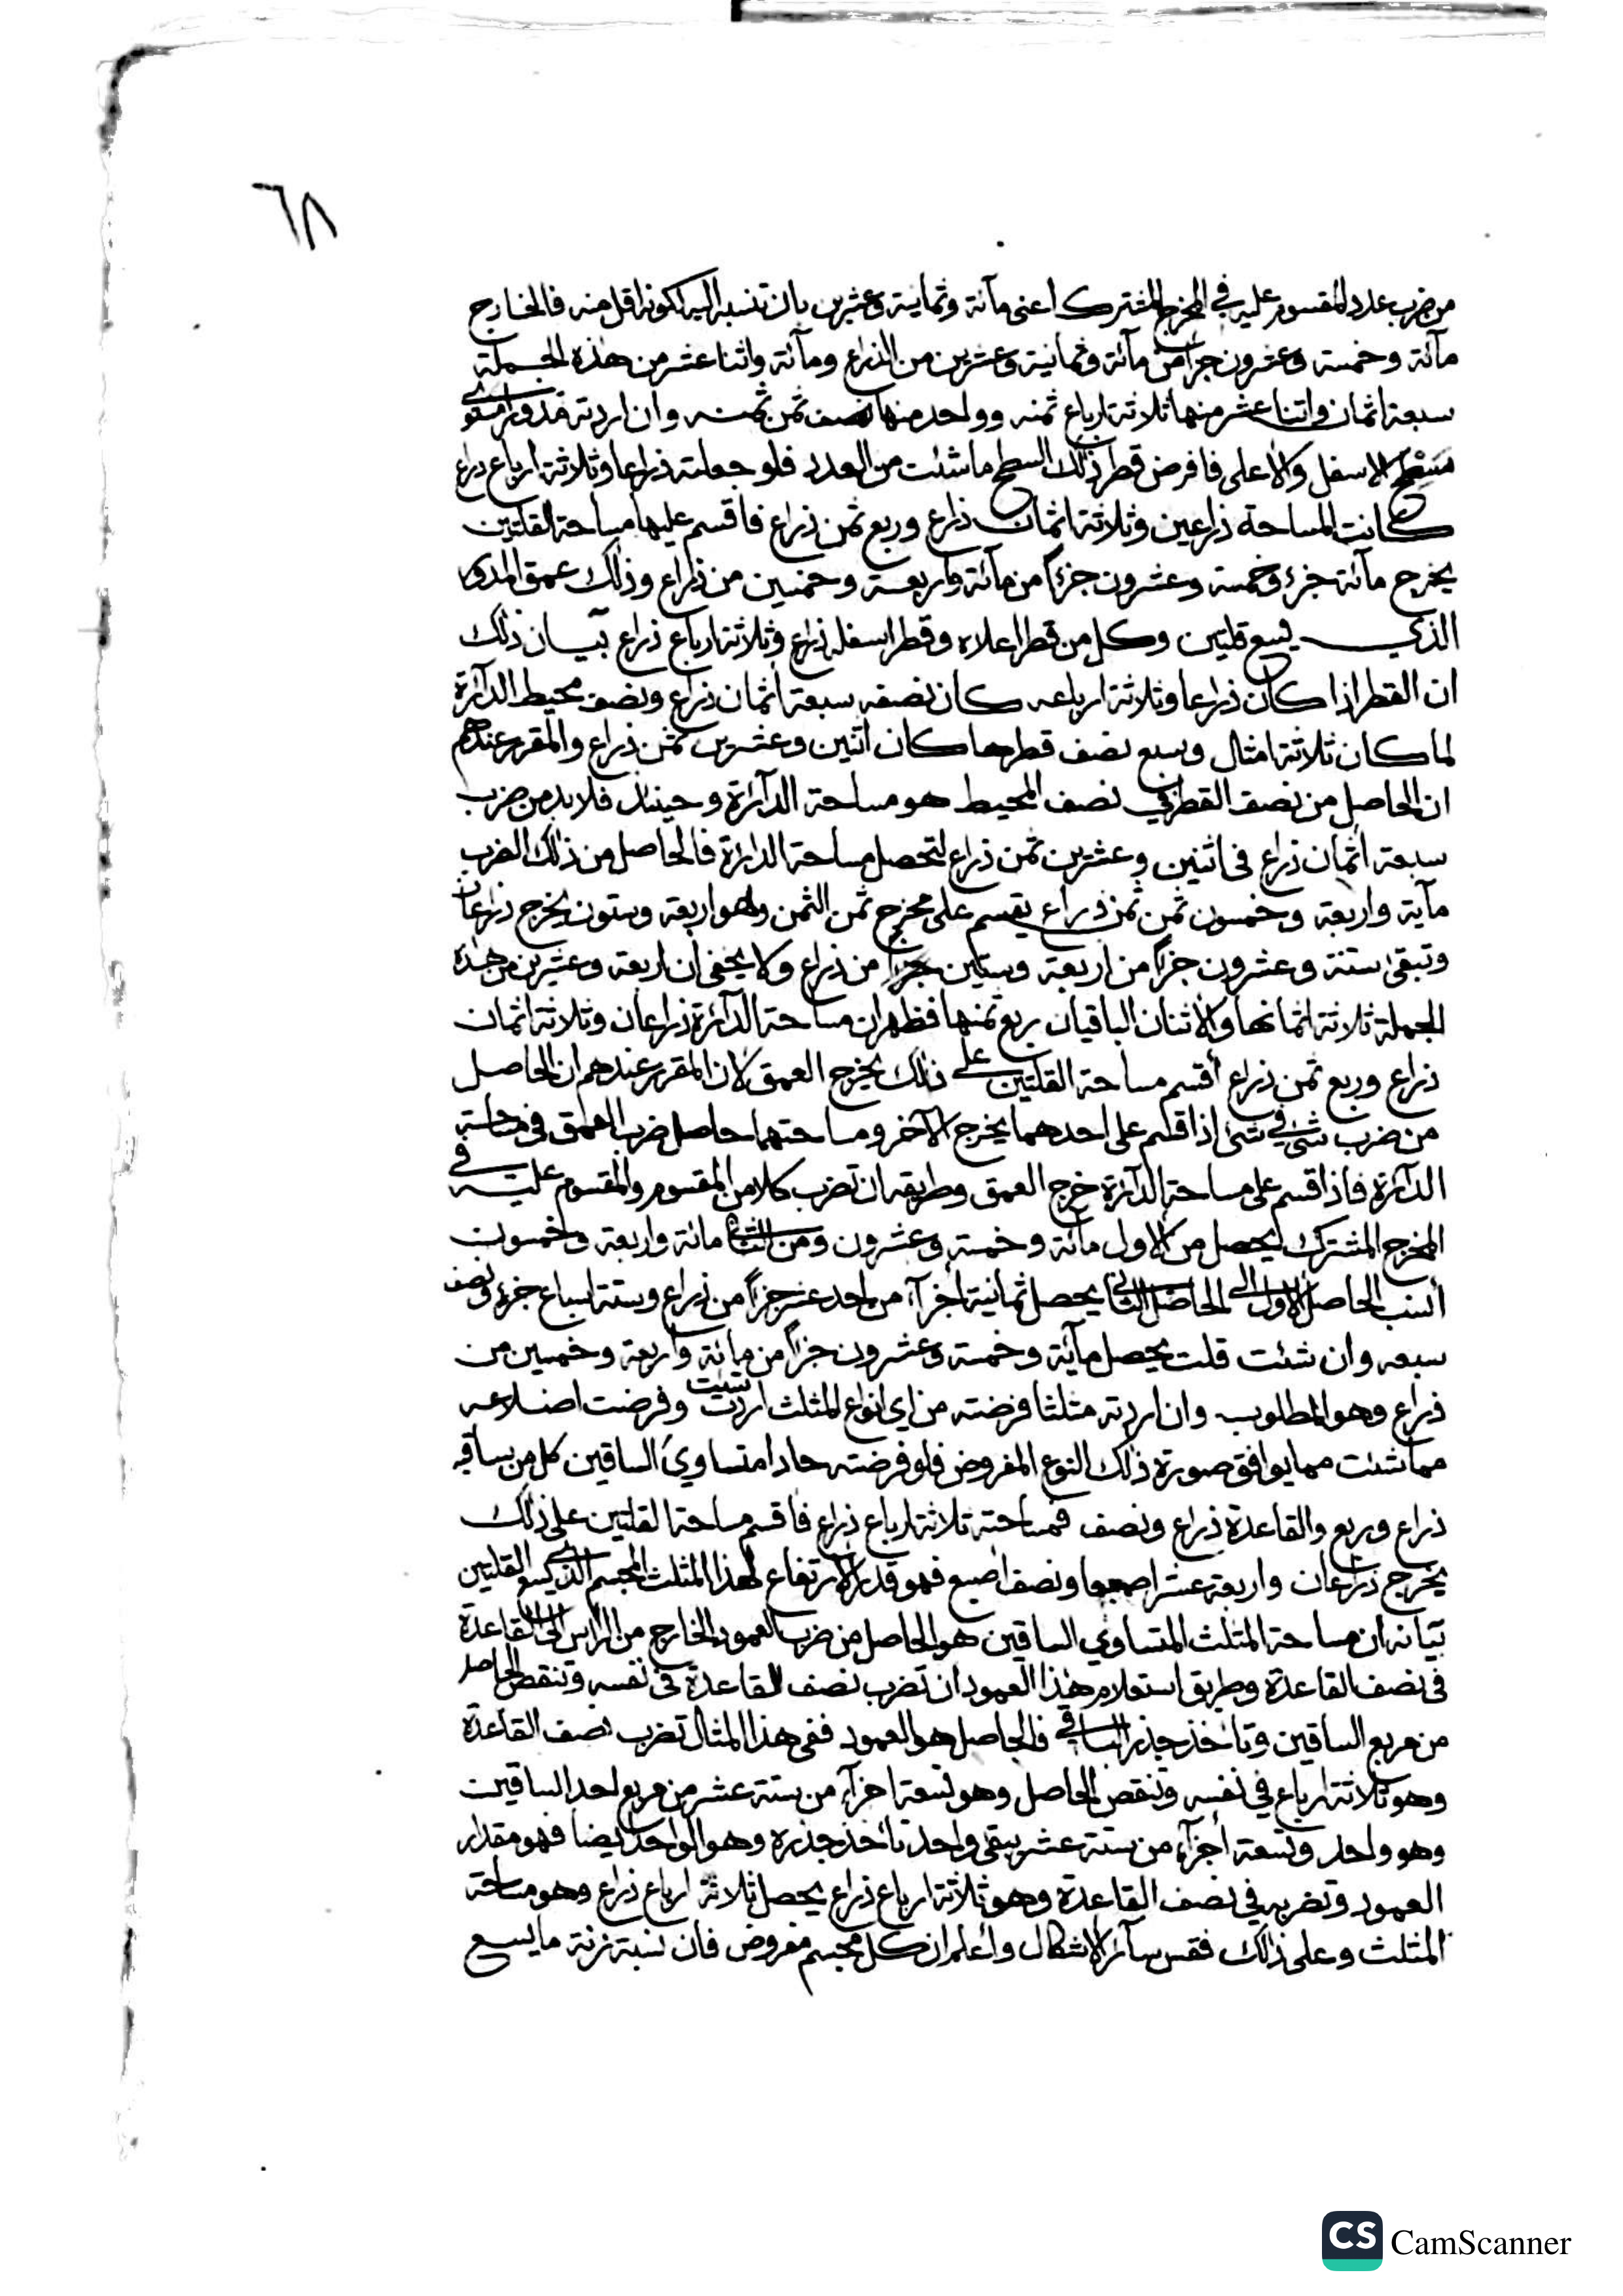 ٦٨
من ضرب عدد المقسوم عليه في المخرج المشترك اعنى مآئة وثمانية وعشرين بان تنسبه اليه لكونه اقل منه فالخارج
مآئة وخمسة وعشرون جزأ من مآئة وثمانية وعشرين من الذراع ومآئة واثنا عشر من هذه الجملة
سبعة اثمان واثنا عشر منها ثلاثة ارباع ثمنه وواحد منها نصف ثمن ثمنه وان اردته مدورا متساوي
سطح الاسفل والاعلى فافرض قطر ذلك السطح ما شئت من العدد فلو جعلته ذراعا وثلاثة ارباع ذراع
كانت المساحة ذراعين وثلاثة اثمان ذراع وربع ثمن ذراع فاقسم عليها مساحة القلتين
يخرج مآئة جزء وخمسة وعشرون جزءًا من مآئة واربعة وخمسين من ذراع وذلك عمق المدور
الذي يسع قلتين وكل من قطر اعلاه وقطر اسفله ذراع وثلاثة ارباع ذراع بيان ذلك
ان القطر اذا كان ذراعا وثلاثة ارباعه كان نصفه سبعة اثمان ذراع ونصف محيط الدآئرة
لما كان ثلاثة امثال وسبع نصف قطرها كان اثنين وعشرين ثمن ذراع والمقرر عندهم
ان الحاصل من نصف القطر في نصف المحيط هو مساحة الدآئرة وحينئذ فلا بد من ضرب
سبعة اثمان ذراع فى اثنين وعشرين ثمن ذراع لتحصل مساحة الدائرة فالحاصل من ذلك الضرب
مآية واربعة وخمسون ثمن ثمن ذراع يقسم على مخرج ثمن الثمن وهو اربعة وستون يخرج ذراعان
وتبقى ستة وعشرون جزأً من اربعة وستين جزأ من ذراع ولا يخفى ان اربعة وعشرين من هذه
الجملة ثلاثة اثمانها والاثنان الباقيان ربع ثمنها فظهر ان مساحة الدآئرة ذراعان وثلاثة اثمان
ذراع وربع ثمن ذراع أقسم مساحة القلتين على ذلك يخرج العمق لان المقرر عندهم ان الحاصل
من ضرب شئ في شئ اذا قسم على احدهما يخرج الآخر ومساحتهما حاصل ضرب العمق فى مساحة
الدآئرة فاذا قسم على مساحة الدآئرة خرج العمق وطريقه ان تضرب كلا من المقسوم والمقسوم عليه في
المخرج المشترك يحصل من الاول مآئة وخمسة وعشرون ومن الثاني مائة واربعة وخمسون
أنسب الحاصل الاول الى الحاصل الثاني يحصل ثمانية أجزآء من احد عشر جزأً من ذراع وستة اسباع جزء ونصف
سبعه وان شئت قلت يحصل مآئة وخمسة وعشرون جزأً من مائة واربعة وخمسين من
ذراع وهو المطلوب وان اردته مثلثا فرضته من اي انواع المثلث اردت شئت وفرضت اضلاعه
مما شئت مما يوافق صورة ذلك النوع المفروض فلو فرضته حادا متساوي الساقين كل من ساقيه
ذراع وربع والقاعدة ذراع ونصف فمساحته ثلاثة ارباع ذراع فاقسم مساحة القلتين على ذلك
يخرج ذراعان واربعة عشر اصبعا ونصف اصبع فهو قدر الارتفاع لهذا المثلث المجسم الذي يسع القلتين
بيانه ان مساحة المثلث المتساوي الساقين هو الحاصل من ضرب العمود الخارج من الراس الى القاعدة
فى نصف القاعدة وطريق استعلام هذا العمود ان تضرب نصف القاعدة فى نفسه وتنقص الحاصل
من مربع الساقين وتأخذ جذر الباقي فالحاصل هو العمود ففى هذا المثال تضرب نصف القاعدة
وهو ثلاثة ارباع في نفسه وتنقص الحاصل وهو تسعة اجزآء من ستة عشر من مربع احد الساقين
وهو واحد وتسعة أجزآء من ستة عشر يبقى واحد تأخذ جذره وهو الواحد ايضا فهو مقدار
العمود وتضربه في نصف القاعدة وهو ثلاثة ارباع ذراع يحصل ثلاثة ارباع ذراع وهو مساحة
المثلث وعلى ذلك فقس سآئر الاشكال واعلم ان كل مجسم مفروض فان نسبة زنة ما يسع
CS CamScanner